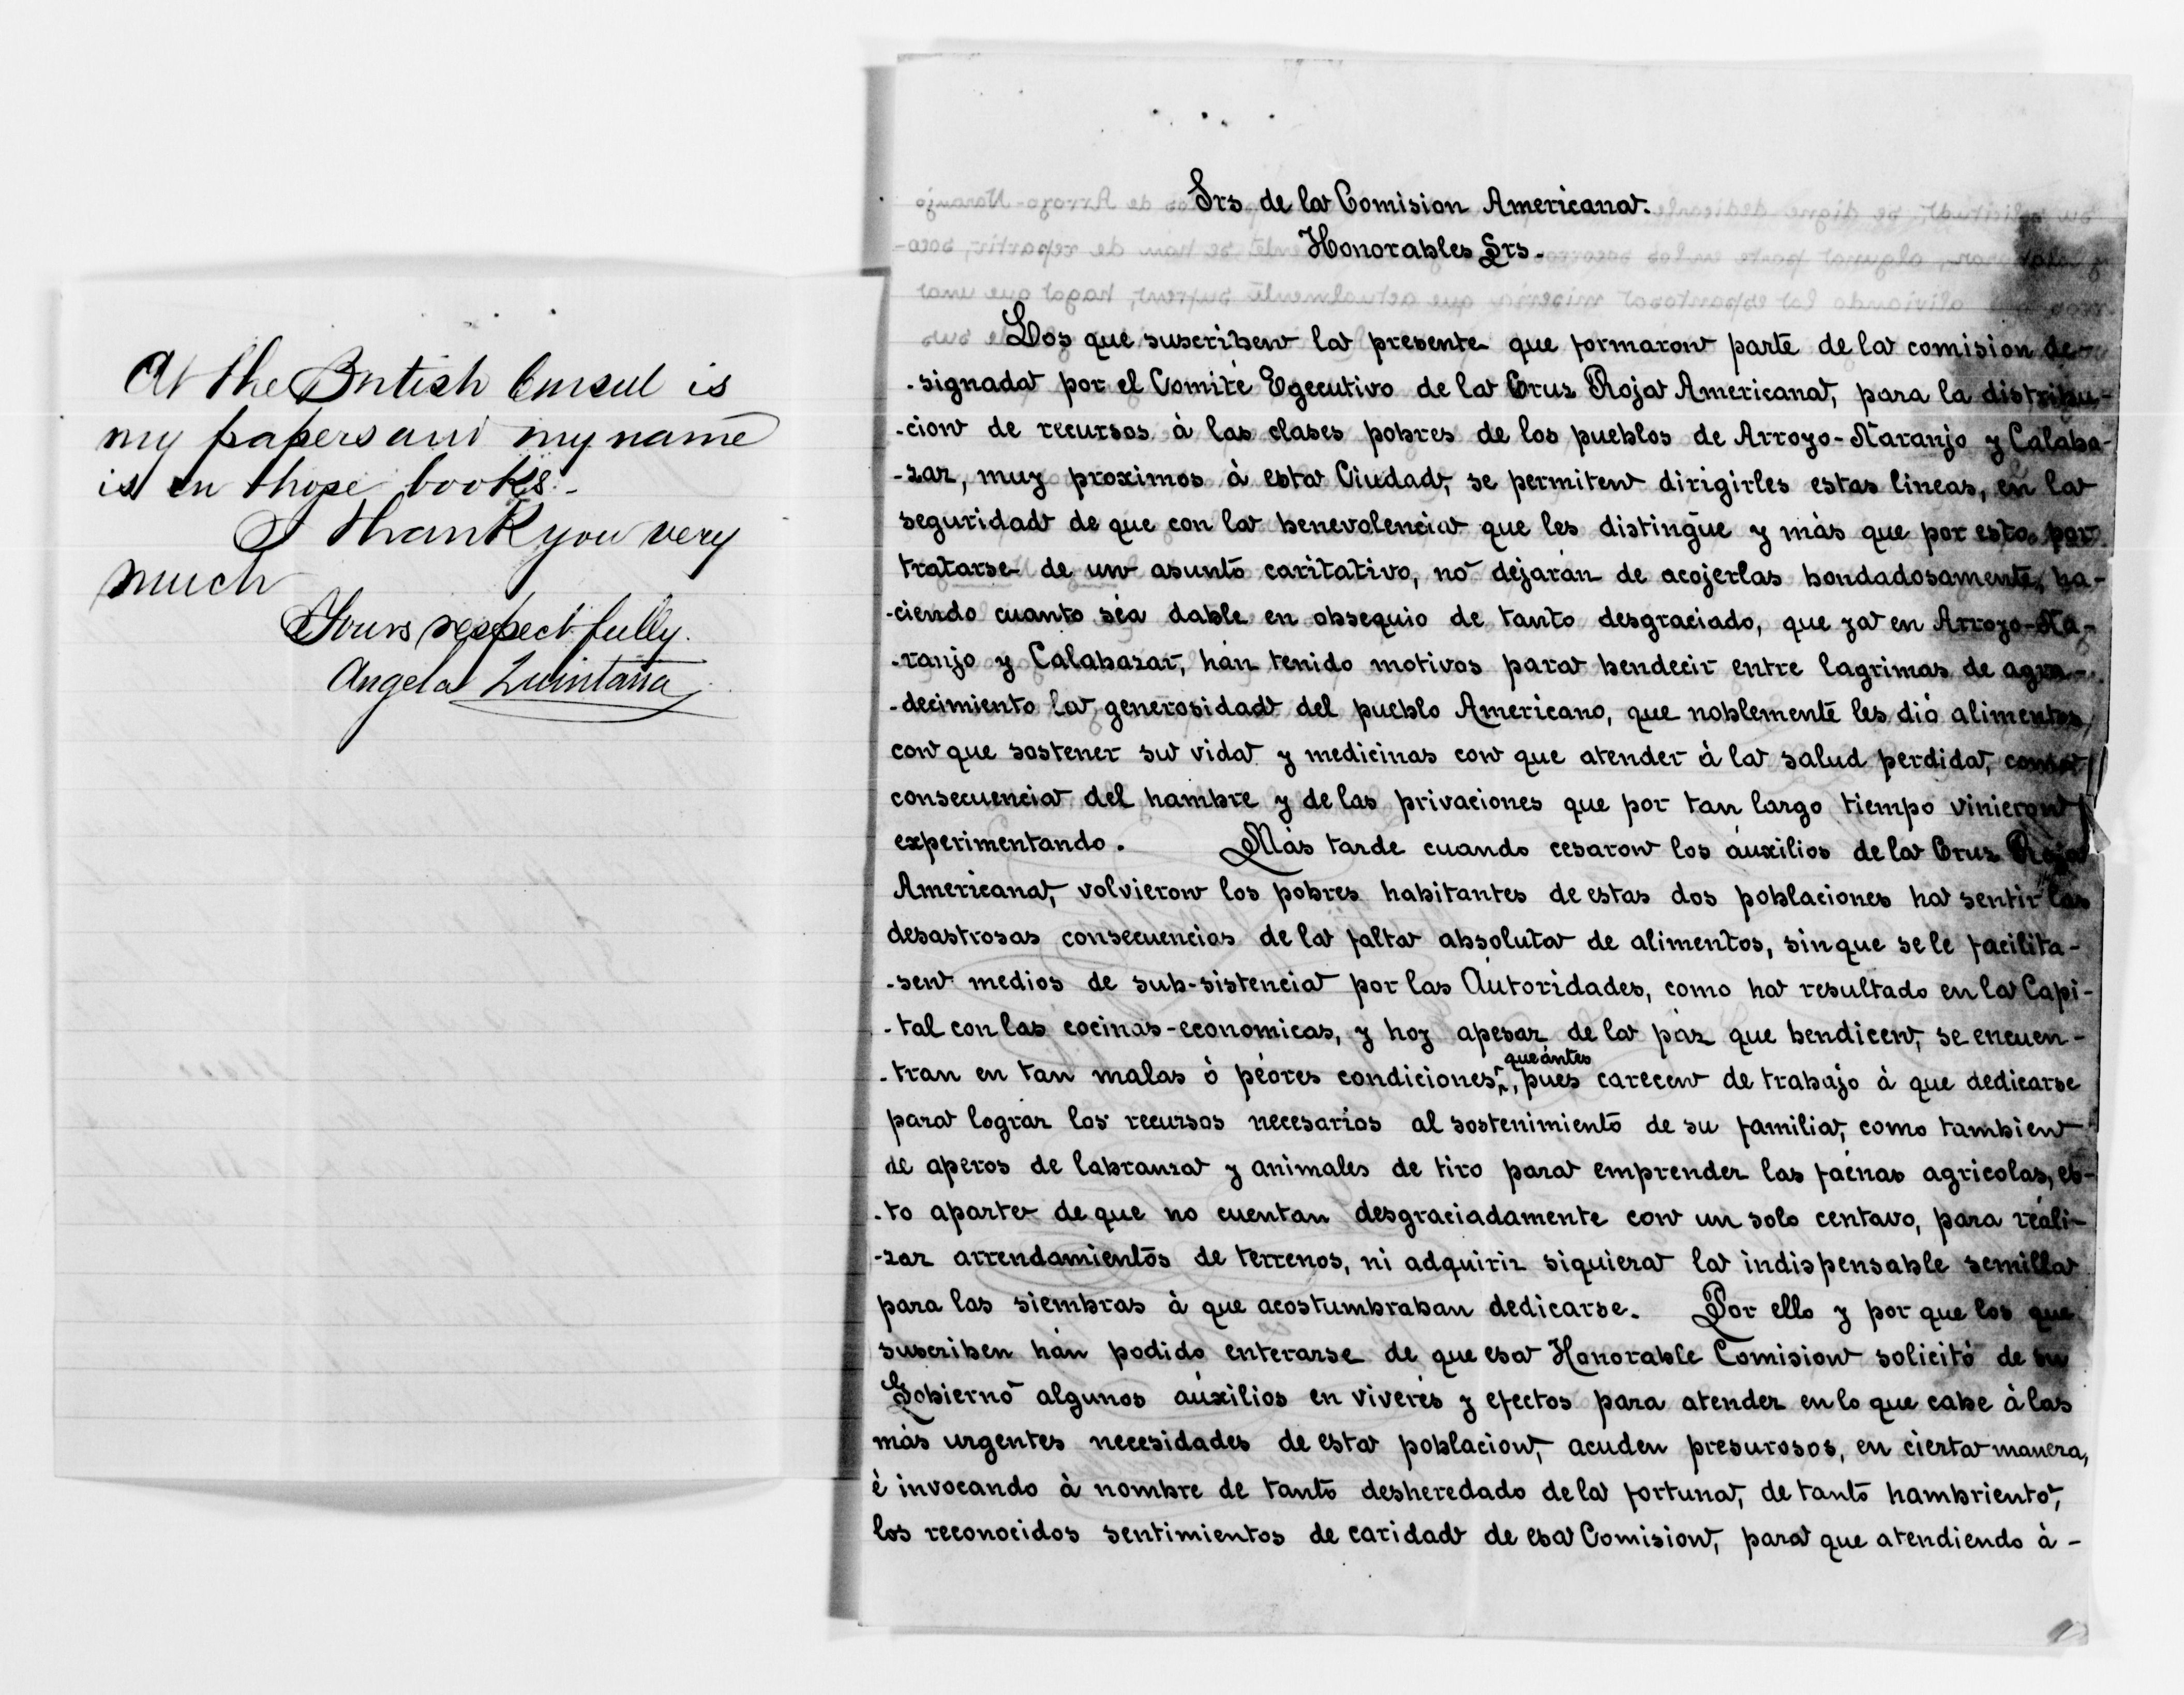 At the British Consul is
my papers and my name
is in those books.-
I thank you very
much
Yours respectfully.
Angela Quintana
Srs. de la Comision Americana.
Honorables Srs.
Los que suscriben la presente que formaron parte de la comision de-
-signada por el Comité Egecutivo de la Cruz Roja Americana, para la distribu-
-cion de recursos à las clases pobres de los pueblos de Arroyo-Naranjo y Calaba-
-zar, muy proximos à esta Ciudad, se permiten dirigirles estas lineas, en la
seguridad de que con la benevolencia que les distingue y màs que por esto por
tratarse de un asunto caritativo, no dejaràn de acojerlas bondadosamente, ha-
-ciendo cuanto séa dable en obsequio de tanto desgraciado, que ya en Arroyo-Na-
-ranjo y Calabazar, hàn tenido motivos para bendecir entre lagrimas de agra-
-decimiento la generosidad del pueblo Americano, que noblemente les diò alimentos
con que sostener su vida y medicinas con que atender à la salud perdida, como
consecuencia del hambre y de las privaciones que por tan largo tiempo vinieron
experimentando. Màs tarde cuando cesaron los áuxilios de la Cruz Roja
Americana, volvieron los pobres habitantes de estas dos poblaciones ha sentir las
desastrosas consecuencias de la falta absoluta de alimentos, sin que se le facilita-
-sen medios de sub-sistencia por las Autoridades, como ha resultado en la Capi-
-tal con las cocinas-economicas, y hoy apesar de la pàz que bendicen, se encuen-
-tran en tan malas ò péores condiciones que ántes, pues carecen de trabajo à que dedicarse
para lograr los recursos necesarios al sostenimiento de su familia, como tambien
de aperos de labranza y animales de tiro para emprender las faénas agricolas, es-
-to aparte de que no cuentan desgraciadamente con un solo centavo, para reali-
-zar arrendamientos de terrenos, ni adquirir siquiera la indispensable semilla
para las siembras à que acostumbraban dedicarse. Por ello y por que los que
suscriben hàn podido enterarse de que esa Honorable Comision solicitó de su
Gobierno algunos aúxilios en viveres y efectos para atender en lo que cabe à las
màs urgentes necesidades de esta poblacion, acuden presurosos, en cierta manera,
è invocando à nombre de tanto desheredado de la fortuna, de tanto hambriento,
los reconocidos sentimientos de caridad de esa Comision, para que atendiendo à -